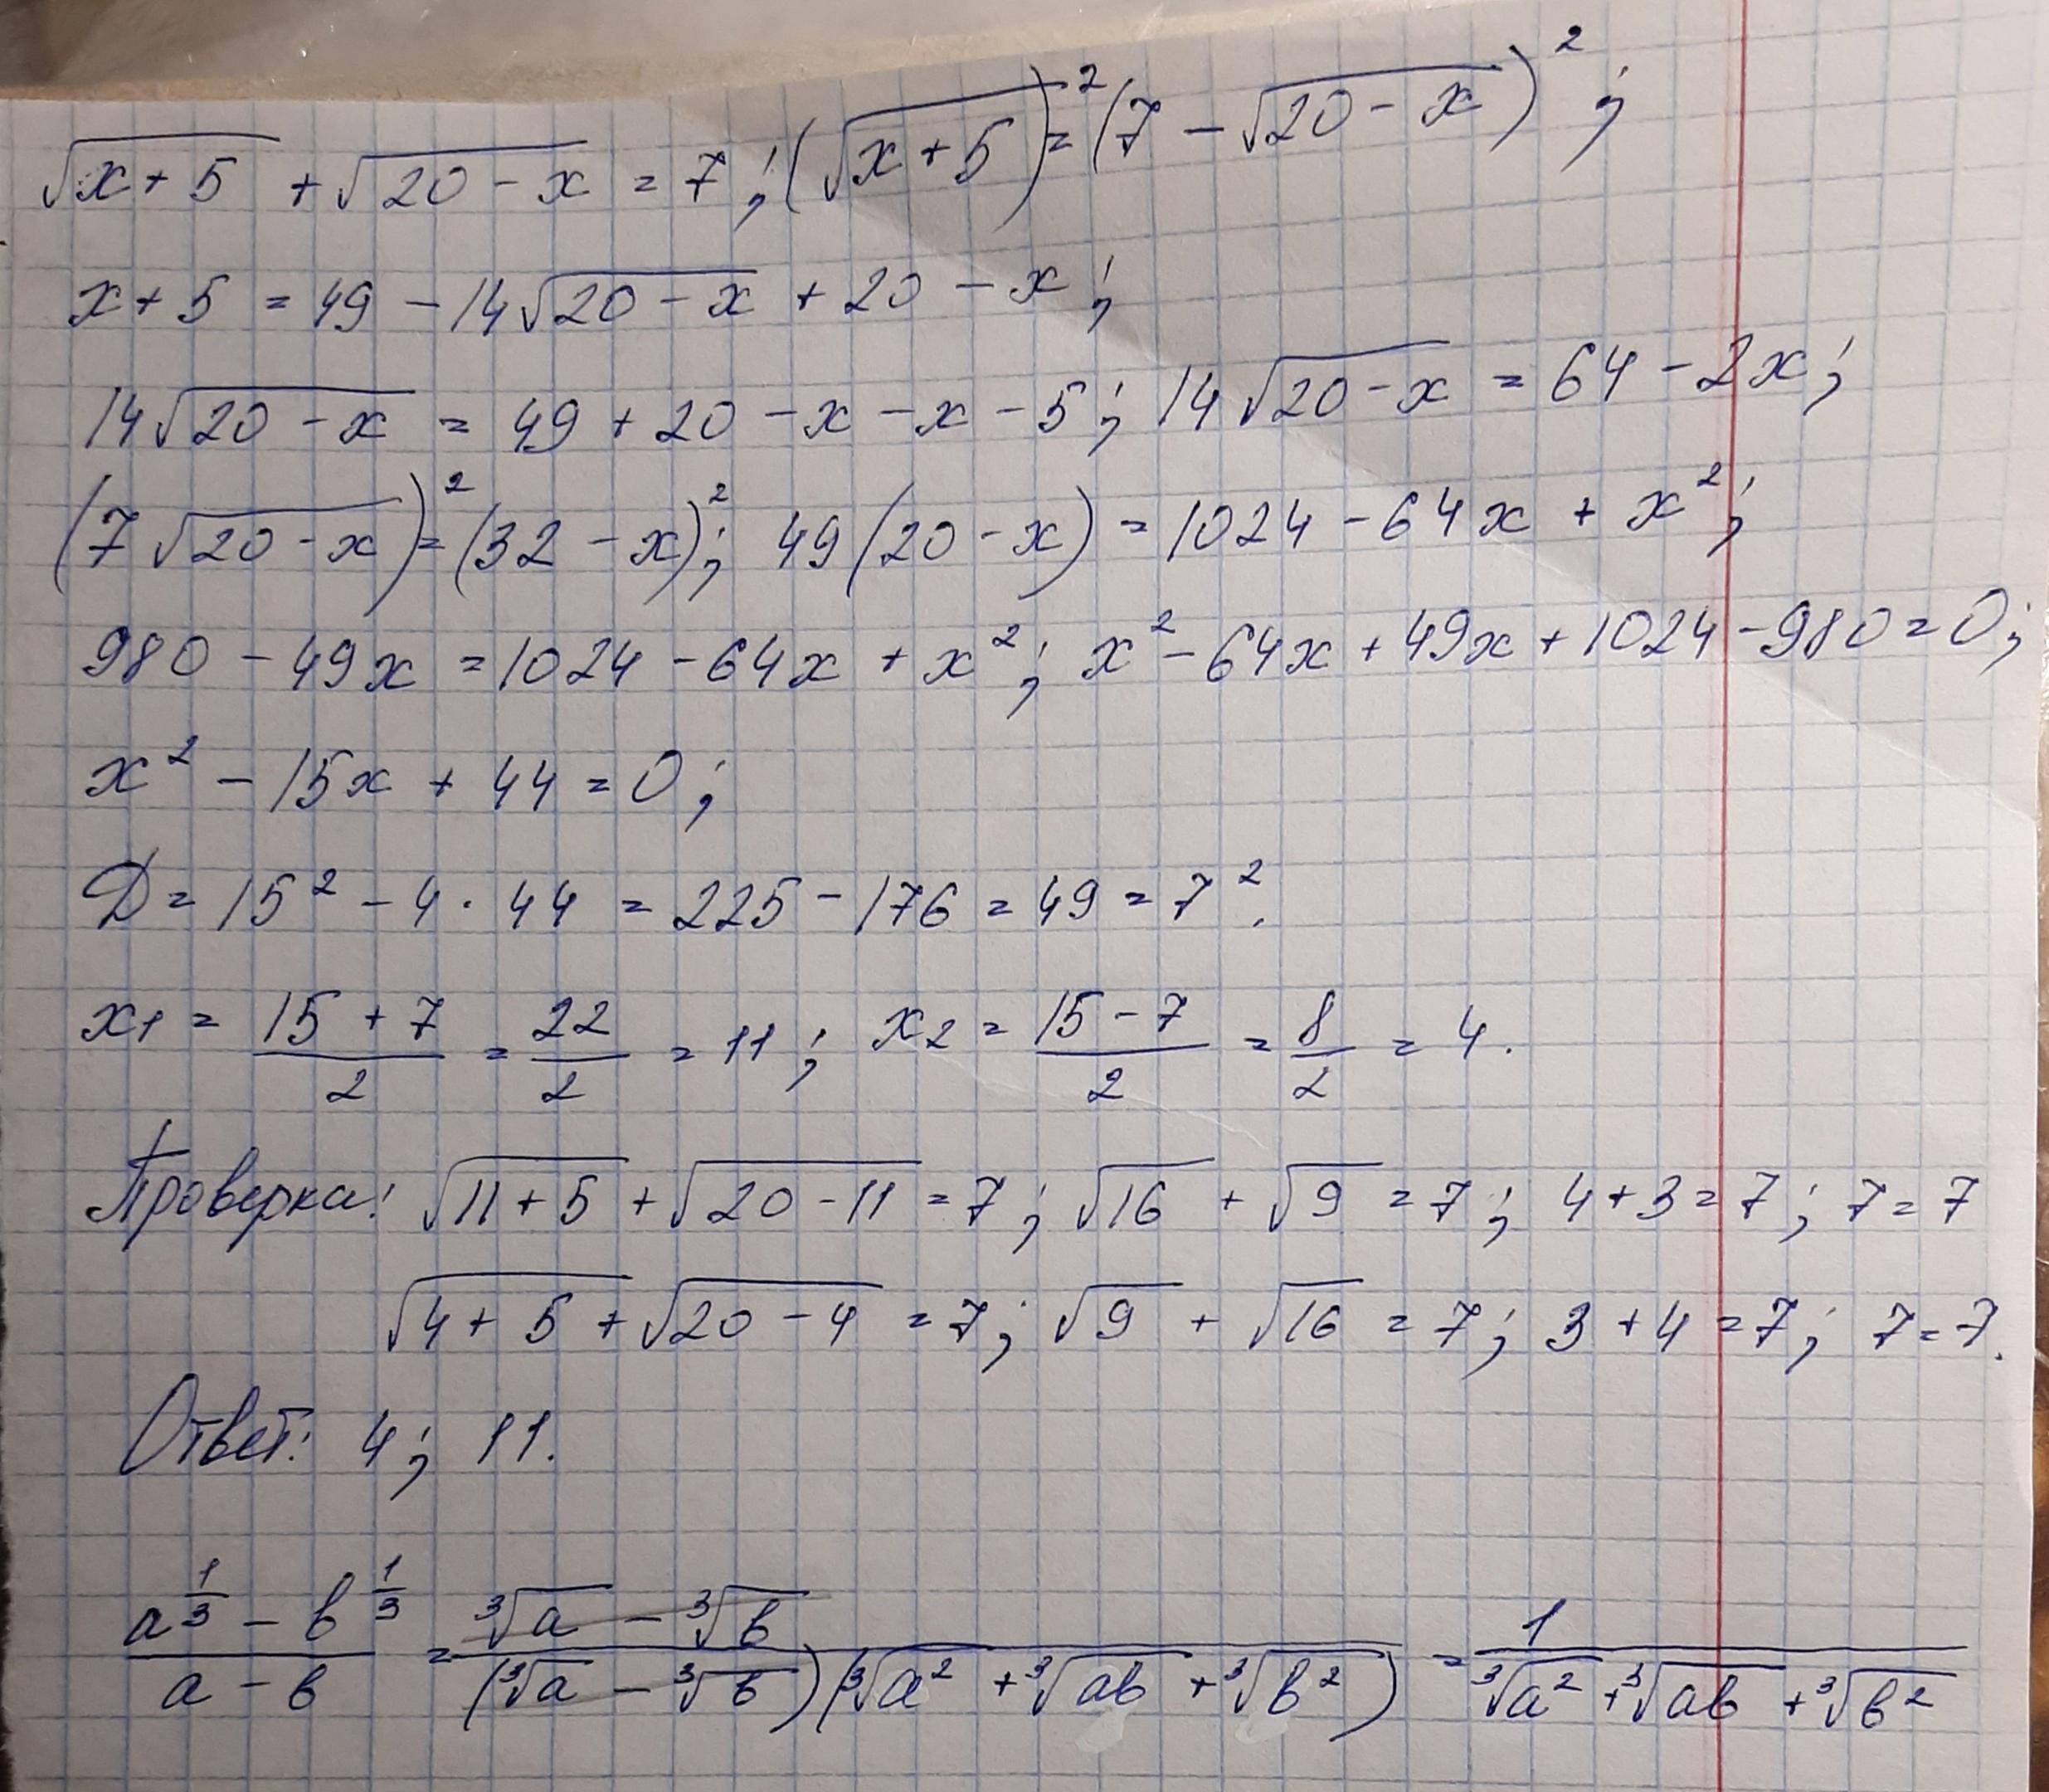 √(x+5) + √(20-x) = 7; (√(x+5))² = (7 - √(20-x))²;
x+5 = 49 - 14√(20-x) + 20 - x;
14√(20-x) = 49 + 20 - x - x - 5; 14√(20-x) = 64 - 2x;
(7√(20-x))² = (32-x)²; 49(20-x) = 1024 - 64x + x²;
980 - 49x = 1024 - 64x + x²; x² - 64x + 49x + 1024 - 980 = 0;
x² - 15x + 44 = 0;
D = 15² - 4·44 = 225 - 176 = 49 = 7².
x₁ = (15+7)/2 = 22/2 = 11; x₂ = (15-7)/2 = 8/2 = 4.
Проверка: √(11+5) + √(20-11) = 7; √16 + √9 = 7; 4+3=7; 7=7
√(4+5) + √(20-4) = 7; √9 + √16 = 7; 3+4=7; 7=7.
Ответ: 4; 11.
(a^(1/3) - b^(1/3))/(a - b) = (∛a - ∛b)/((∛a - ∛b)(∛a² + ∛ab + ∛b²)) = 1/(∛a² + ∛ab + ∛b²)